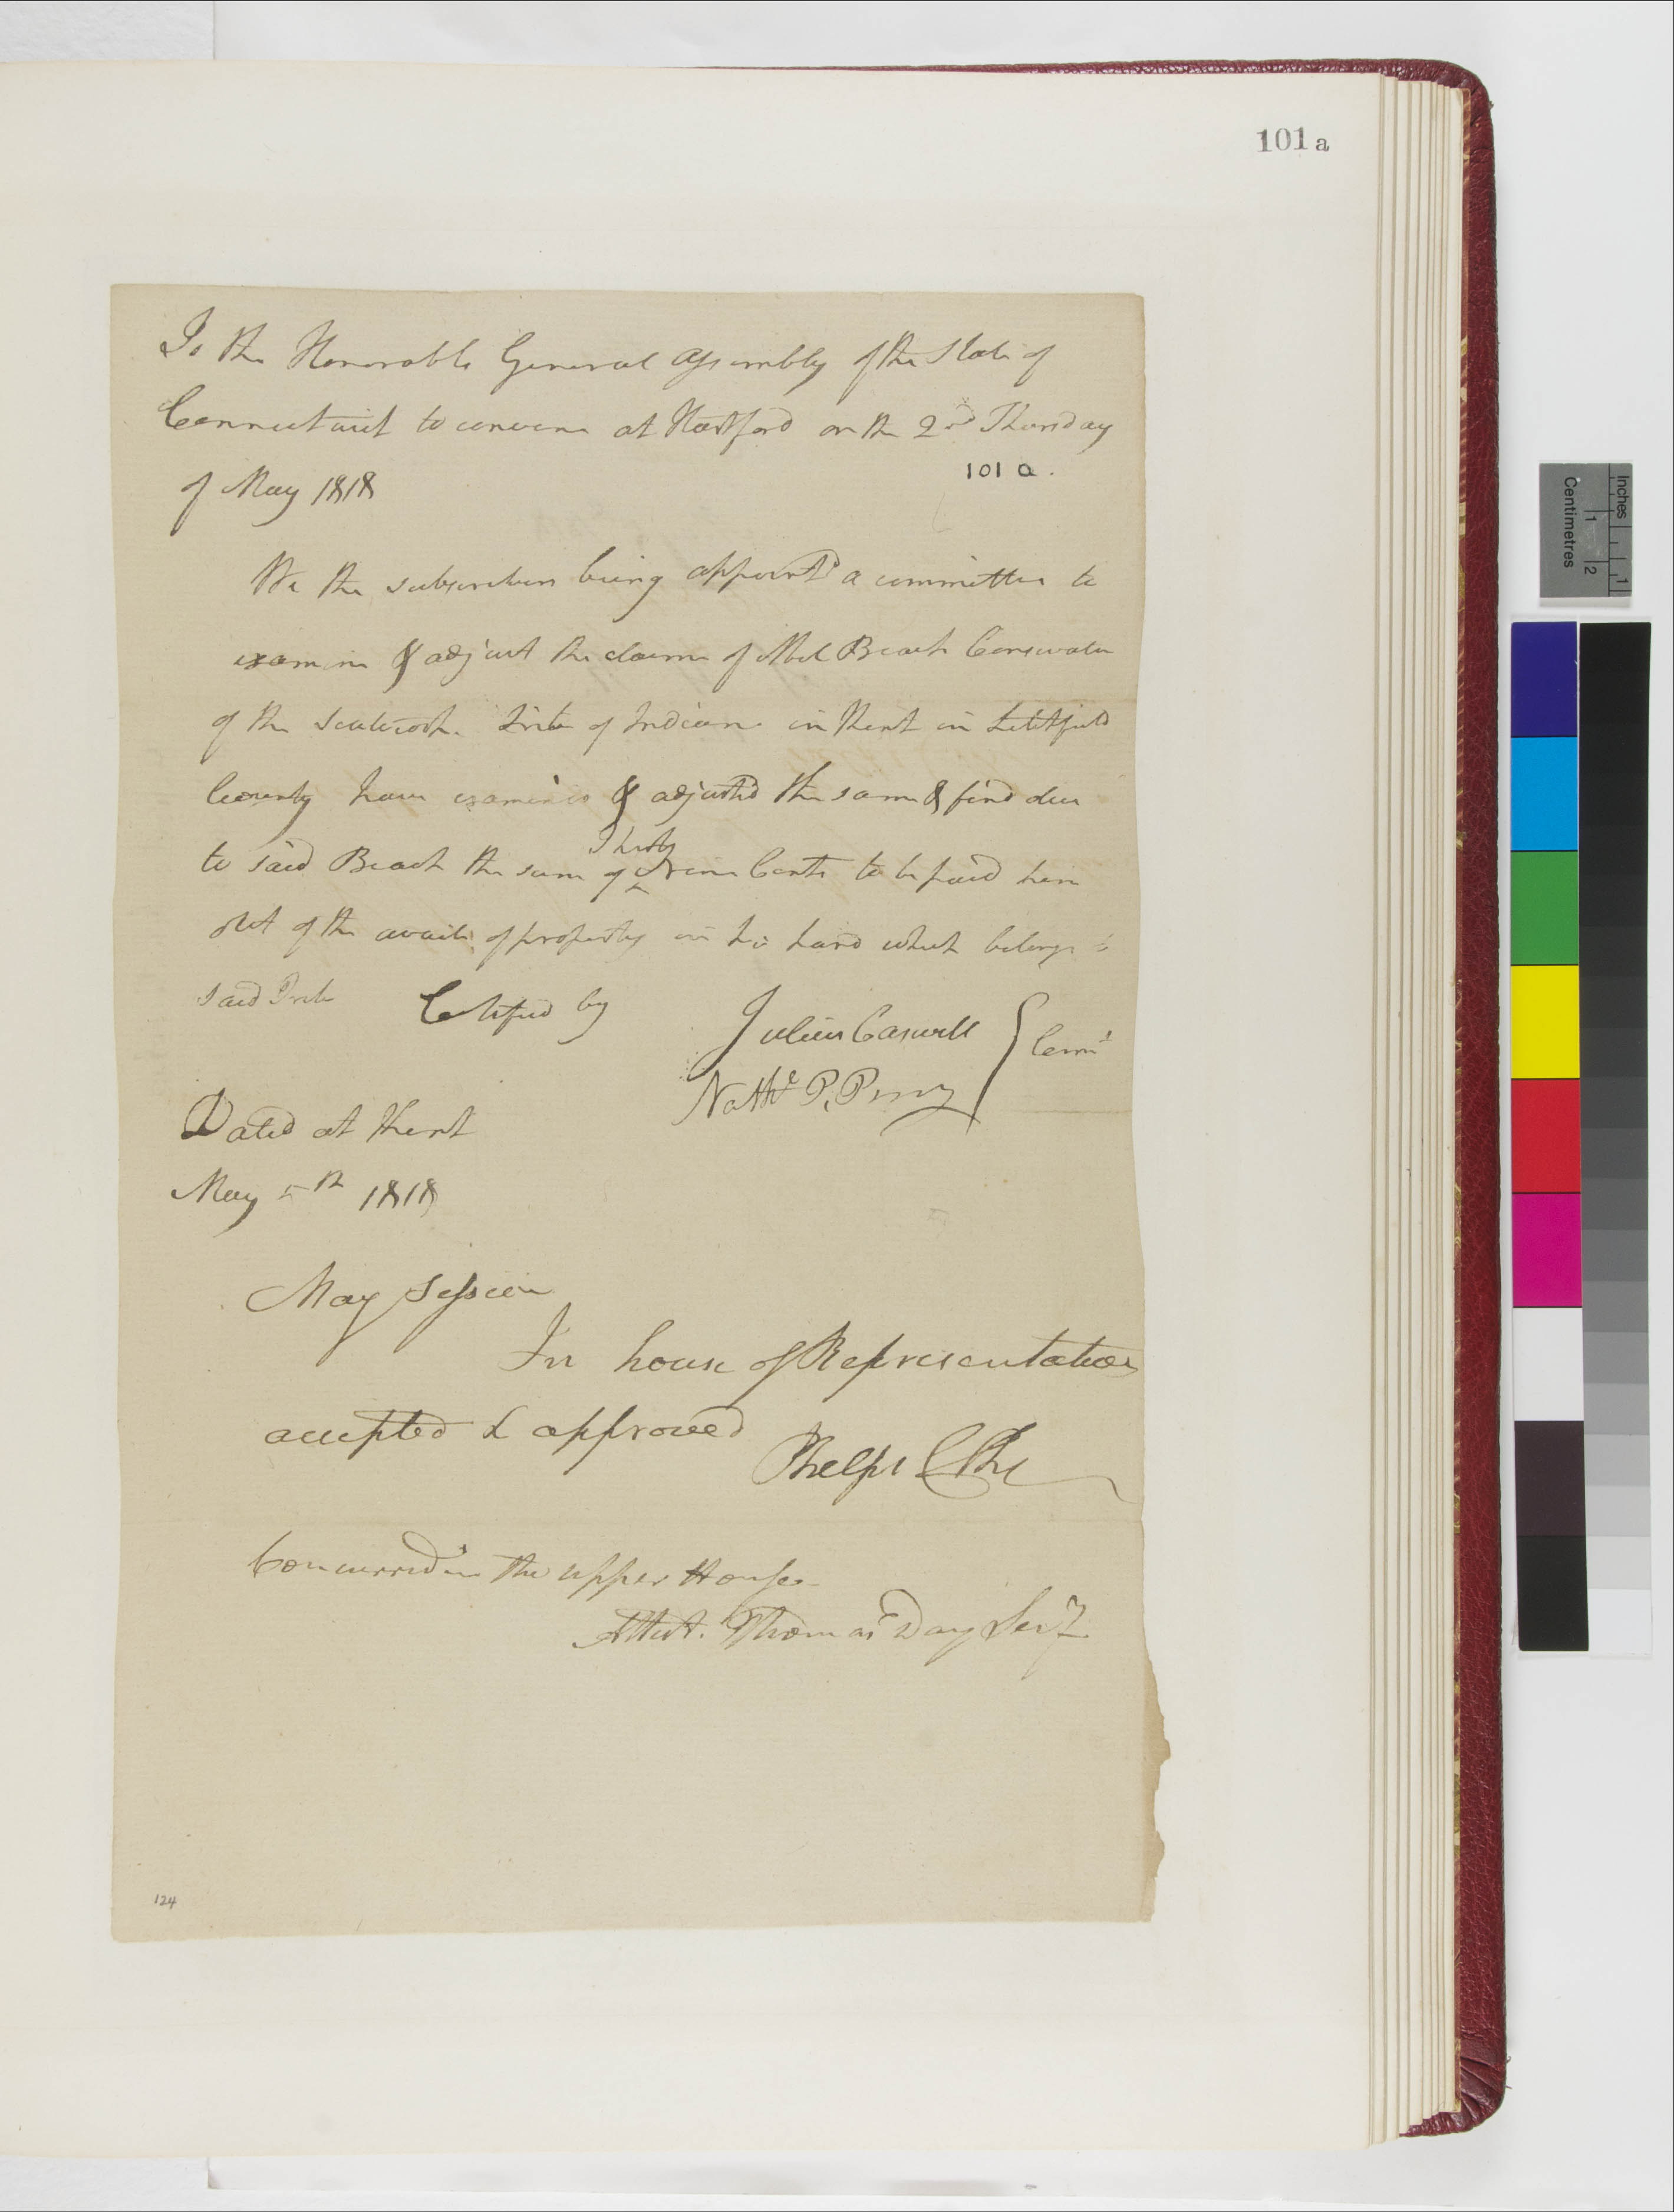 101 a
To the Honorable General Assembly of the State of
Connecticut to convene at Hartford on the 2nd Thursday
101 a.
of May 1818
We the subscribers being appointd a committee to
examine & adjust the claims of Abel Beach Conservator
of the Scaticook Tribe of Indians in Kent in Litchfield
County have examined & adjusted the same & find due
Thirty
to said Beach the sum of ^ Nine Cents to be paid him
out of the avails of property in his hand which belongs to
said Tribe Certified by
Julius Caswell
Comt
Nathl P. Perry
Dated at Kent
May 5th 1818
May Session
In house of Representatives
accepted & approved
Phelps Clk
Concurred in the upper House
Attest. Thomas Day Secy
124
Inches
1
Centimetres
1
2